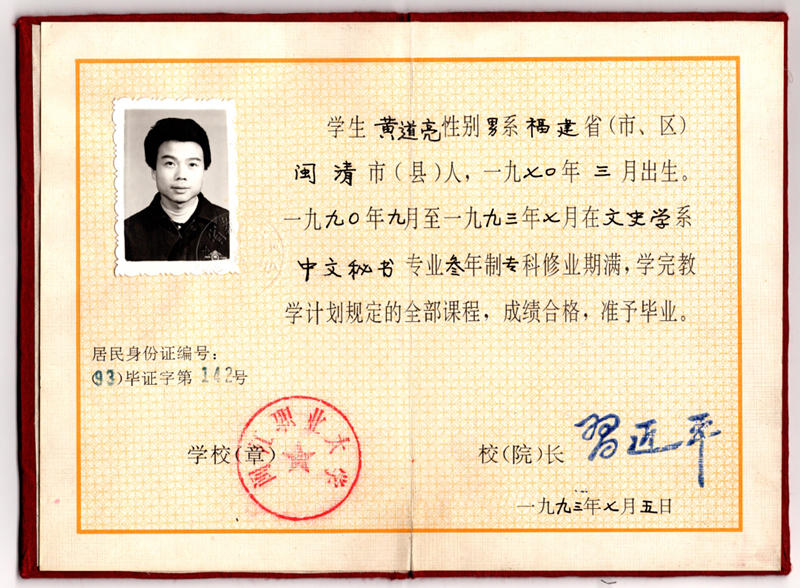 学生黄道亮性别男系福建省(市、区)
闽清市(县)人,一九七〇年三月出生。
一九九〇年九月至一九九三年七月在文史学系
中文秘书专业叁年制专科修业期满,学完教
学计划规定的全部课程,成绩合格,准予毕业。
居民身份证编号:
(93)毕证字第142号
学校(章)
闽江职业大学
校(院)长 習近平
一九九三年七月五日